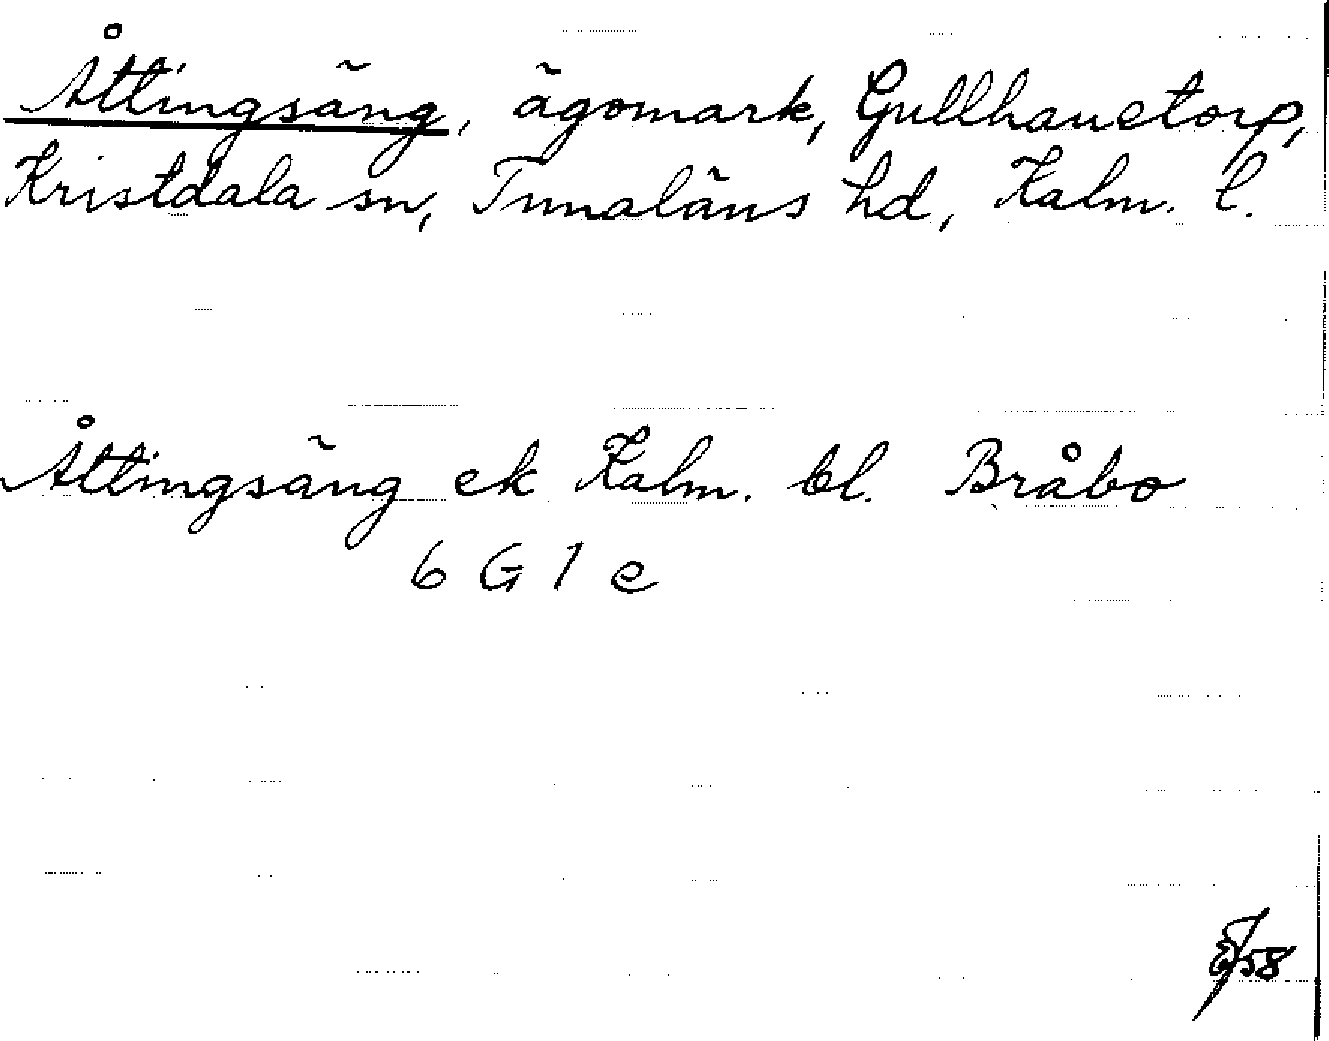 Åttingsäng, ägomark, Gullhanetorp,
Kristdala sn, Tunaläns hd, Kalm. l.
Åttingsäng ek Kalm. bl. Bråbo
6 G 1 e
58